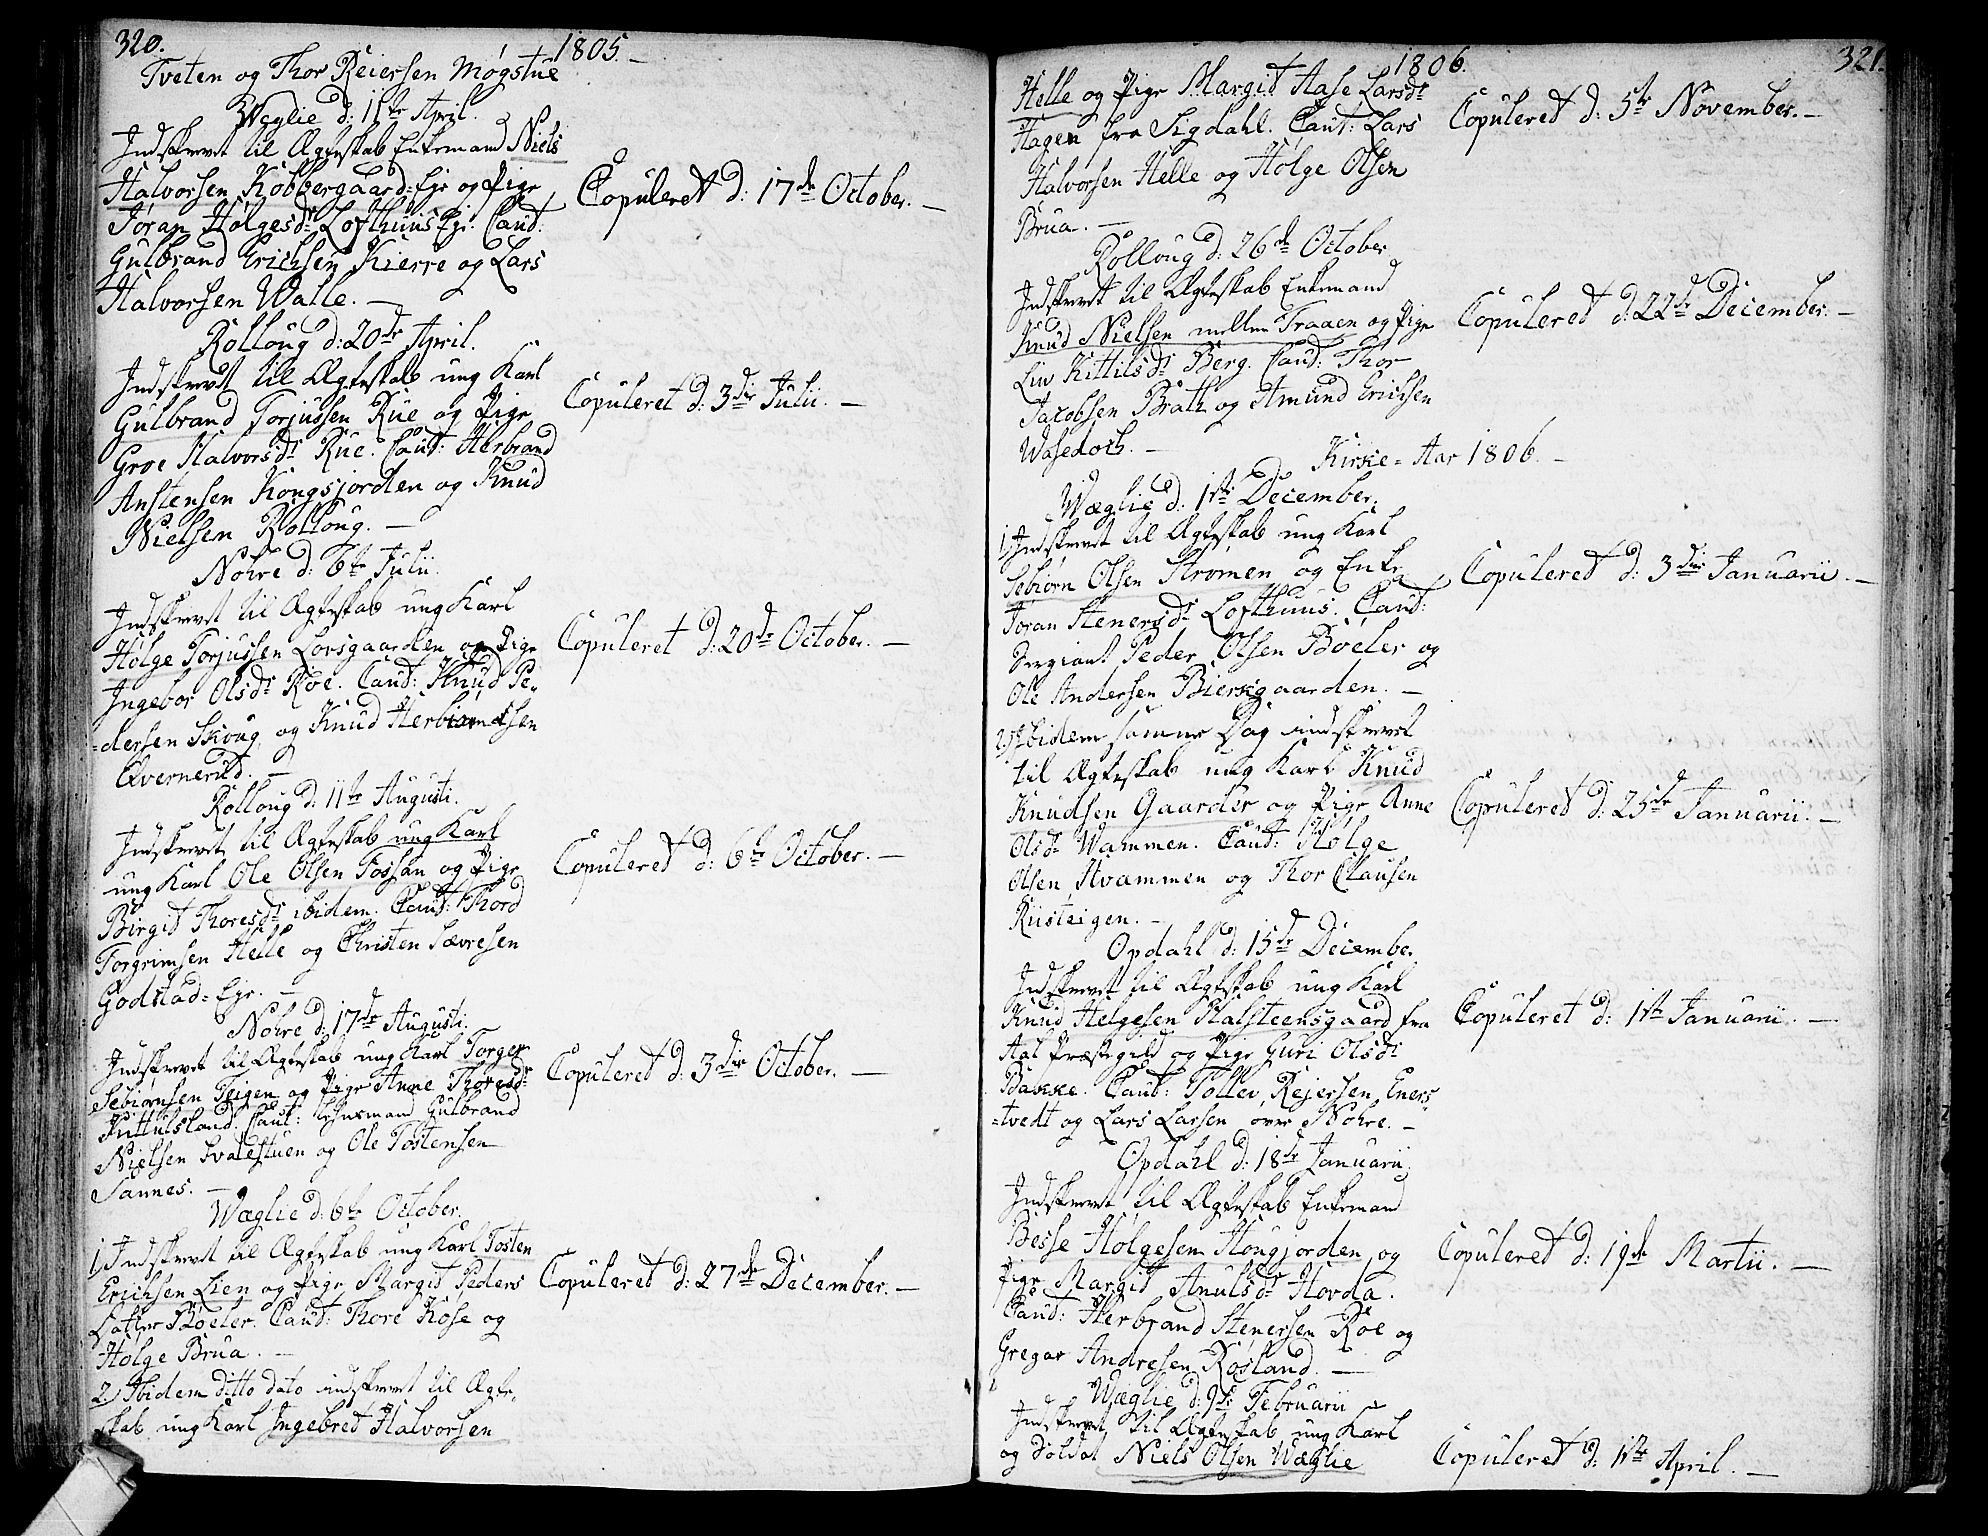 320.
1805. —
Tveten og Thor Reiersen Møgstue
Weglie d: 15te April.
Indskrevet til Ægteskab Enkemand Niels
Halvorsen Kobbergaard=Eje og Pige
Jøran Holgesdr Lofthuus Eje. Caut:
Gulbrand Erichsen Kierre og Lars
Halvorsen Walle. —
Copuleret d: 17de October. —
Rolloug d: 20de April.
Indskrevet til Ægteskab ung Karl
Gulbrand Torjussen Rue og Pige
Groe Halvorsdr Rue. Caut: Herbrand
Anstensen Kongsjorden og Knud
Nielsen Rolloug. —
Copuleret d: 3die Julii. —
Nohre d: 6te Julii.
Indskrevet til Ægteskab ung Karl
Holge Torjussen Lorsgaarden og Pige
Ingebor Olsdr Roe. Caut: Knud Pe-
=dersen Skoug, og Knud Herbrandsen
Qvernerud. —
Copuleret d: 20de October. —
Rolloug d: 11te Augusti.
Indskrevet til Ægteskab ung Karl
ung Karl Ole Olsen Fossan og Pige
Birgit Thoresdr ibidem. Caut: Thord
Torgrimsen Helle og Christen Sævresen
Godstad=Eje. —
Copuleret d: 6te October. —
Nohre d: 17de Augusti.
Indskrevet til Ægteskab ung Karl Torger
Sebiørnsen Teigen og Pige Anne Thoresdr
Kittulsland. Caut: Lehnsmand Gulbrand
Nielsen Evalestuen og Ole Tostensen
Sannes. —
Copuleret d: 3die October. —
Wæglie d: 6te October.
1, Indskrevet til Ægteskab ung Karl Tosten
Erichsen Lien og Pige Margit Peders
Datter Bøeler. Caut: Thore Kose og
Holge Brua. —
Copuleret d: 27de December. —
2.) Ibidem ditto dato indskrevet til Ægte-
skab ung Karl Ingebret Halvorsen
1806.
321.
Helle og Pige Margit Aase Larsdr
Hagen fra Sigdahl. Caut: Lars
Halvorsen Helle og Holge Olsen
Brua. —
Copuleret d: 5te November. —
Rolloug d: 26de October
Indskrevet til Ægteskab Enkemand
Knud Nielsen mellem Traaen og Pige
Liv Kittilsdr Berg. Caut: Thor
Jacobsen Brath og Amund Erichsen
Wasedoth. —
Copuleret d: 22de December. —
Kirke=Aar 1806. —
Wæglie d: 1ste December.
1, Indskrevet til Ægteskab ung Karl
Sebiørn Olsen Strømen og Enke
Jøran Stenersdr Lofthuus. Caut:
Sergiant Peder Olsen Bøeler og
Ole Andersen Bierkgaarden. —
Copuleret d: 3die Januarii. —
2.) Ibidem samme Dag indskrevet
til Ægteskab ung Karl Knud
Knudsen Gaarder og Pige Anne
Olsdr Wammen. Caut: Holge
Olsen Hvammen og Thor Clausen
Riisteigen. —
Copuleret d: 25de Januarii. —
Opdahl d: 15de December
Indskrevet til Ægteskab ung Karl
Knud Helgesen Halsteensgaard fra
Aal Præstegield og Pige Guri Olsdr
Bakke. Caut: Tollev Rejersen Eners-
=tvedt og Lars Larsen over Nohre. —
Copuleret d: 1ste Januarii. —
Opdahl d: 18de Januarii.
Indskrevet til Ægteskab Enkemand
Besse Holgesen Hougjorden og
Pige Margit Anulsdr Hovda.
Caut: Herbrand Stenersen Roe og
Gregar Andresen Rosland. —
Copuleret d: 19de Martii. —
Wæglie d: 9de Februarii
Indskrevet til Ægteskab ung Karl
og Soldat Niels Olsen Wæglie
Copuleret d: 1ste April. —